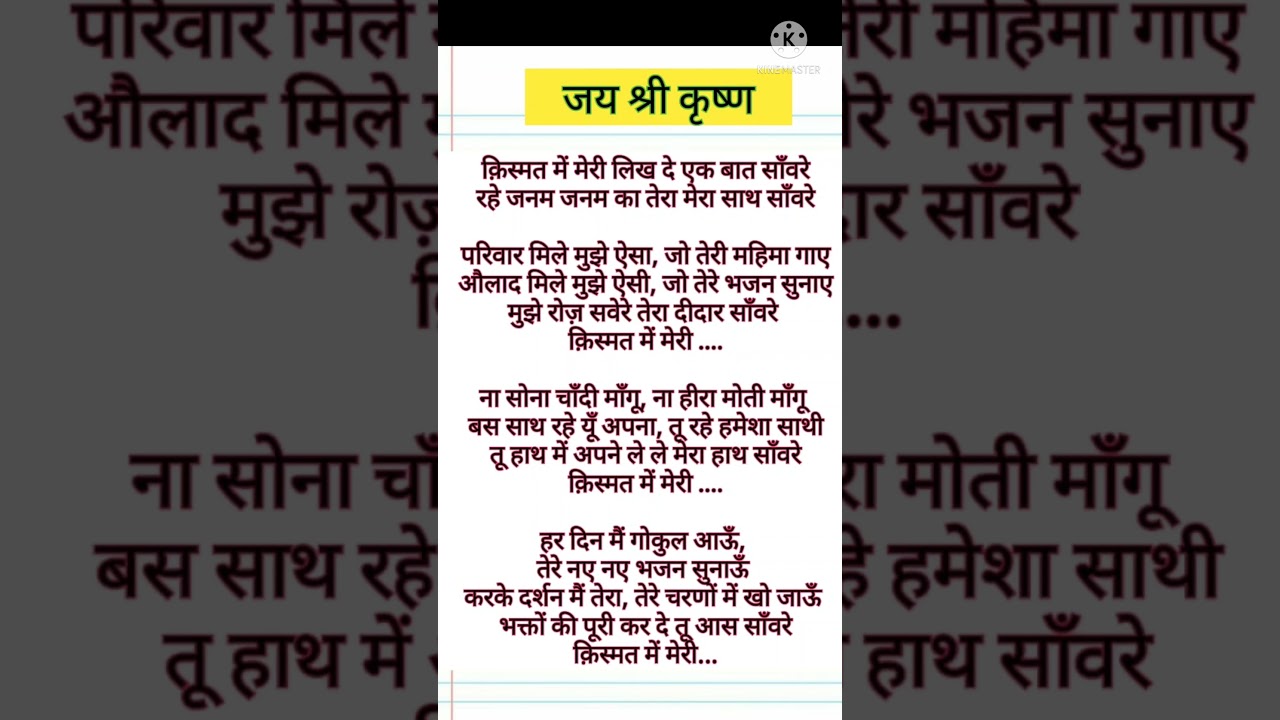 K
KINEMASTER
जय श्री कृष्ण
क़िस्मत में मेरी लिख दे एक बात साँवरे
रहे जनम जनम का तेरा मेरा साथ साँवरे
परिवार मिले मुझे ऐसा, जो तेरी महिमा गाए
औलाद मिले मुझे ऐसी, जो तेरे भजन सुनाए
मुझे रोज़ सवेरे तेरा दीदार साँवरे
क़िस्मत में मेरी ....
ना सोना चाँदी माँगू, ना हीरा मोती माँगू
बस साथ रहे यूँ अपना, तू रहे हमेशा साथी
तू हाथ में अपने ले ले मेरा हाथ साँवरे
क़िस्मत में मेरी ....
हर दिन मैं गोकुल आऊँ,
तेरे नए नए भजन सुनाऊँ
करके दर्शन मैं तेरा, तेरे चरणों में खो जाऊँ
भक्तों की पूरी कर दे तू आस साँवरे
क़िस्मत में मेरी...